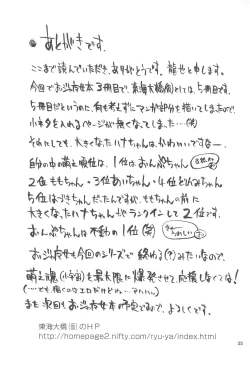 ● あとがきです.
ここまで読んでいただき、ありがとうです。龍也と申します。
今回でお当番女本3冊目で、東海大橋(仮)としては、5冊目です。
5冊目だというのに、何も考えずにマンガ部分を描いてしまったので、
小ネタを入れるページが無くなってしまった…(笑)
それにしても、大きくなったハナちゃんは、かわいいですなー.
自分の中の萌え順位は、1位はおんぷちゃん
2位ももちゃん・3位あいちゃん・4位どれみちゃん
5位はづきちゃん、だったんですが、ももちゃんの前に
大きくなったハナちゃんがランクインして2位です.
おんぷちゃんは不動の1位(笑)
お当番女も今回のシリーズで終わる(?)みたいなので、
萌え魂を最大限に爆発させて、応援しなくては!
(…でも描くのはエロだけどね…アハハハ)
また次回もお当番女本の予定ですので、よろしくです。
東海大橋(仮)のHP
http://homepage2.nifty.com/ryu-ya/index.html
25